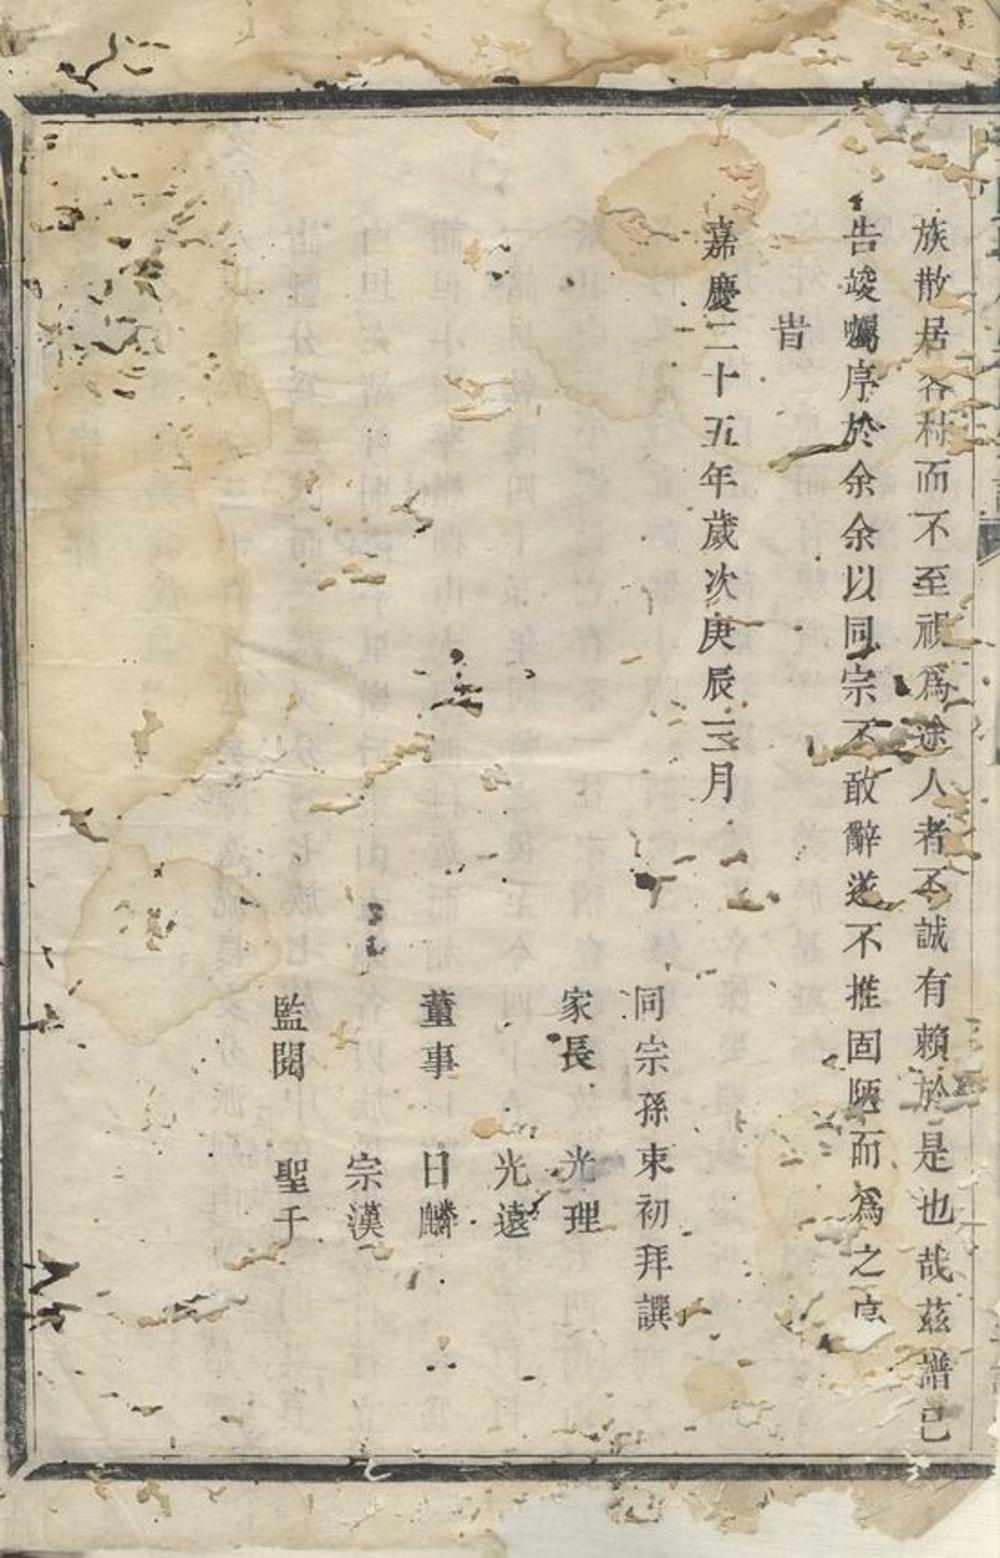 族散居各村而不至視為途人者不誠有賴於是也哉茲譜已
告竣囑序於余余以同宗不敢辭遂不推固陋而為之序
旹
嘉慶二十五年歲次庚辰三月
同宗孫束初拜譔
家長 光理
光遠
董事 日麟
宗漢
監閱 聖千